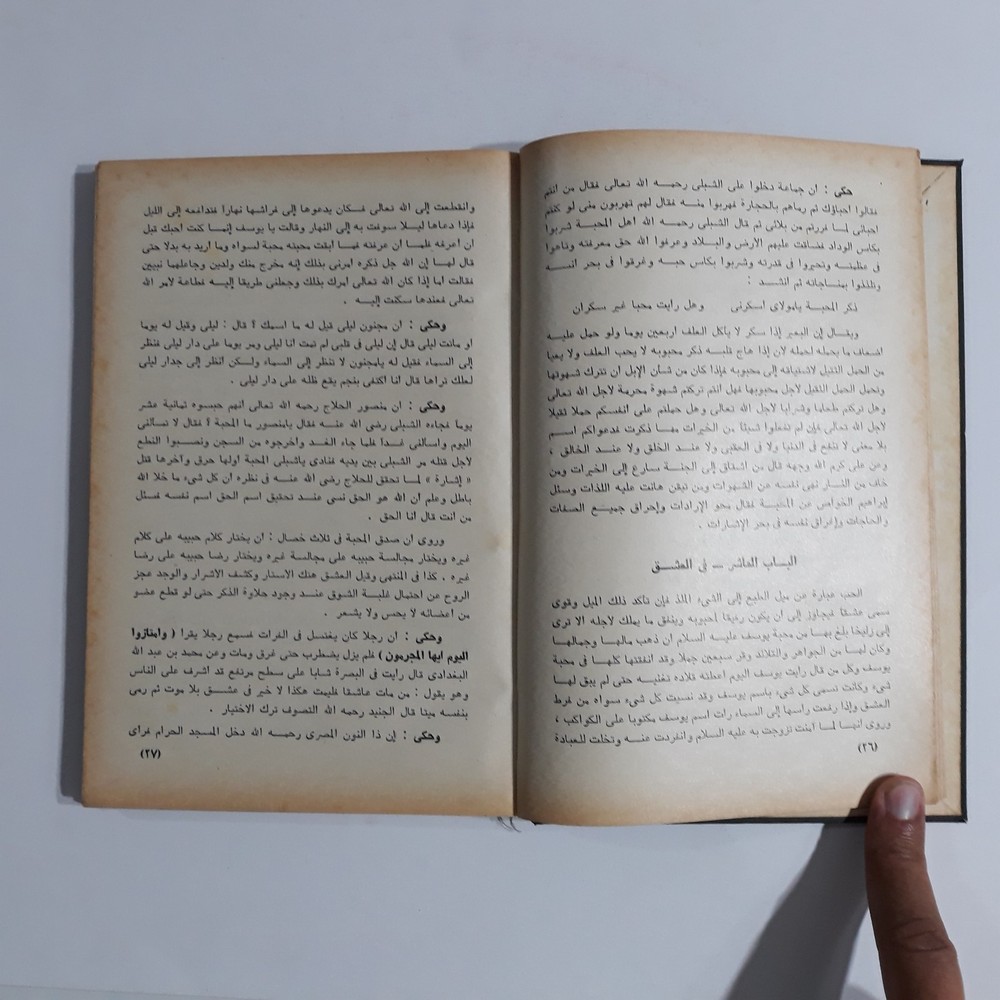 حكى : ان جماعة دخلوا على الشبلى رحمه الله تعالى فقال من انتم
فقالوا احباؤك ثم رماهم بالحجارة فهربوا منه فقال لهم تهربون منى لو كنتم
احبائى لما فررتم من بلائى ثم قال الشبلى رحمه الله اهل المحبة شربوا
بكأس الوداد فضاقت عليهم الارض والبلاد وعرفوا الله حق معرفته وتاهوا
فى عظمته وتحيروا فى قدرته وشربوا بكأس حبه وغرقوا فى بحر انسه
وتلذذوا بمناجاته ثم انشد :
ذكر المحبة يامولاى اسكرنى وهل رايت محبا غير سكران
ويقال إن البعير إذا سكر لا يأكل العلف اربعين يوما ولو حمل عليه
اضعاف ما يحمله لحمله لان إذا هاج قلبه ذكر محبوبه لا يحب العلف ولا يعيا
من الحمل الثقيل لاشتياقه إلى محبوبه فإذا كان من شأن الإبل ان تترك شهوتها
وتحمل الحمل الثقيل لاجل محبوبها فهل انتم تركتم شهوة محرمة لاجل الله تعالى
وهل تركتم طعاما وشرابا لاجل الله تعالى وهل حملتم على انفسكم حملا ثقيلا
لاجل الله تعالى فإن لم تفعلوا شيئا من الخيرات مما ذكرت فدعواكم اسم
بلا معنى لا تنفع فى الدنيا ولا فى العقبى ولا عند الخلق ولا عند الخالق ،
وعن على كرم الله وجهه قال من اشتاق إلى الجنة سارع إلى الخيرات ومن
خاف من النار نهى نفسه عن الشهوات ومن تيقن هانت عليه اللذات وسئل
إبراهيم الخواص عن المحبة فقال محو الإرادات وإحراق جميع الصفات
والحاجات وإغراق نفسه فى بحر الإشارات .
الباب العاشر — فى العشق
الحب عبارة عن ميل الطبع إلى الشىء الملذ فإن تأكد ذلك الميل وقوى
سمى عشقا فيجاوز إلى ان يكون رقيقا لمحبوبه وينفق ما يملك لاجله الا ترى
إلى زليخا بلغ بها من محبة يوسف عليه السلام ان ذهب مالها وجمالها
وكان لها من الجواهر والقلائد وقر سبعين جملا وقد انفقتها كلها فى محبة
يوسف وكل من قال رايت يوسف اليوم اعطته قلاده تغنيه حتى لم يبق لها
شىء وكانت تسمى كل شىء باسم يوسف وقد نسيت كل شىء سواه من فرط
العشق وإذا رفعت راسها إلى السماء رات اسم يوسف مكتوبا على الكواكب ،
وروى انها لما امنت تزوجت به عليه السلام وانفردت عنه وتخلت للعبادة
(٢٦)
وانقطعت إلى الله تعالى فكان يدعوها إلى فراشها نهارا فتدافعه إلى الليل
فإذا دعاها ليلا سوفت به إلى النهار وقالت يا يوسف إنما كنت احبك قبل
ان اعرفه فلما ان عرفته فما ابقت محبته محبة لسواه وما اريد به بدلا حتى
قال لها إن الله جل ذكره امرنى بذلك إنه مخرج منك ولدين وجاعلهما نبيين
فقالت اما إذا كان الله تعالى امرك بذلك وجعلنى طريقا إليه فطاعة لامر الله
تعالى فعندها سكنت إليه .
وحكى : ان مجنون ليلى قيل له ما اسمك ؟ قال : ليلى وقيل له يوما
او ماتت ليلى قال إن ليلى فى قلبى لم تمت انا ليلى ومر يوما على دار ليلى فنظر
إلى السماء فقيل له يامجنون لا تنظر إلى السماء ولكن انظر إلى جدار ليلى
لعلك تراها قال انا اكتفى بنجم يقع ظله على دار ليلى .
وحكى : ان منصور الحلاج رحمه الله تعالى انهم حبسوه ثمانية عشر
يوما فجاءه الشبلى رضى الله عنه فقال يامنصور ما المحبة ؟ فقال لا تسألنى
اليوم واسالنى غدا فلما جاء الغد واخرجوه من السجن ونصبوا النطع
لاجل قتله مر الشبلى بين يديه فنادى ياشبلى المحبة اولها حرق وآخرها قتل
« إشارة » لما تحقق للحلاج رضى الله عنه فى نظره ان كل شىء ما خلا الله
باطل وعلم ان الله هو الحق نسى عند تحقيق اسم الحق اسم نفسه فسئل
من انت قال انا الحق .
وروى ان صدق المحبة فى ثلاث خصال : ان يختار كلام حبيبه على كلام
غيره ويختار مجالسة حبيبه على مجالسة غيره ويختار رضا حبيبه على رضا
غيره . كذا فى المنتهى وقيل العشق هتك الاستار وكشف الاسرار والوجد عجز
الروح عن احتمال غلبة الشوق عند وجود حلاوة الذكر حتى لو قطع عضو
من اعضائه لا يحس ولا يشعر .
وحكى : ان رجلا كان يغتسل فى الفرات فسمع رجلا يقرا ( وامتازوا
اليوم ايها المجرمون ) فلم يزل يضطرب حتى غرق ومات وعن محمد بن عبد الله
البغدادى قال رايت فى البصرة شابا على سطح مرتفع قد اشرف على الناس
وهو يقول : من مات عاشقا فليمت هكذا لا خير فى عشق بلا موت ثم رمى
بنفسه ميتا قال الجنيد رحمه الله التصوف ترك الاختيار .
وحكى : إن ذا النون المصرى رحمه الله دخل المسجد الحرام فراى
(٢٧)